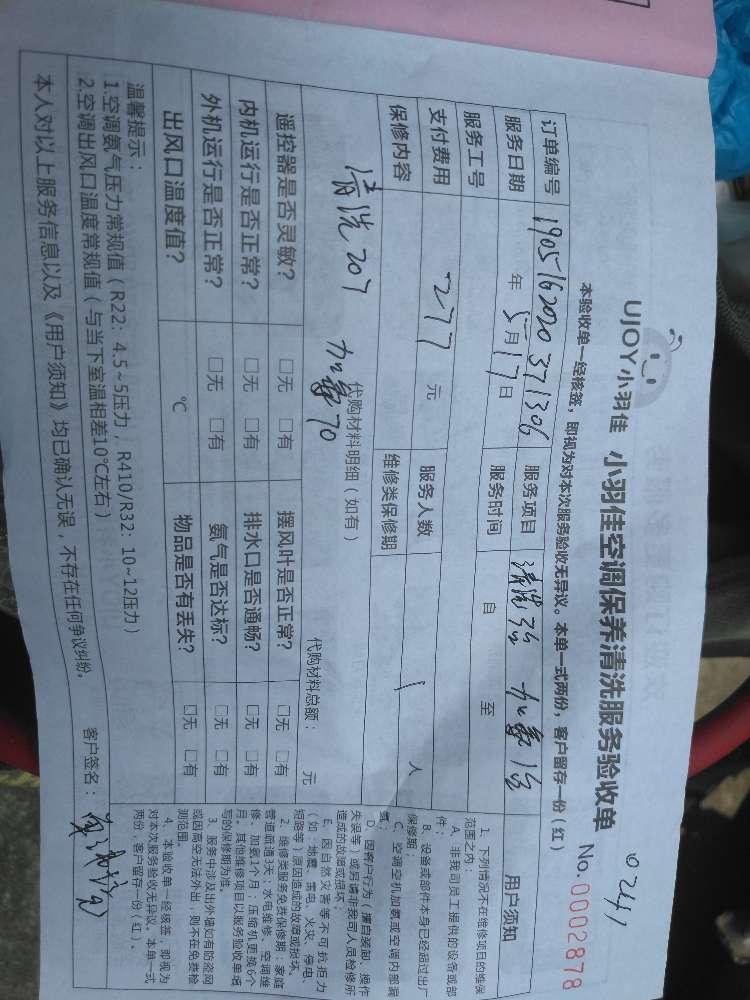 UJOY小羽佳 小羽佳空调保养清洗服务验收单
No.0002878
本验收单一经核签，即视为对本次服务验收无异议。本单一式两份，客户留存一份（红）
订单编号 1905162020371306 服务项目 清洗3台 加氨1台
服务日期 年 5月17日 服务时间 自 至
服务工号
支付费用 277 元 服务人数 1 人
保修内容 维修类保修期
代购材料明细（如有）
清洗207 加氨70
代购材料总额： 元
遥控器是否灵敏？ □无 □有 摆风叶是否正常？ □无 □有
内机运行是否正常？ □无 □有 排水口是否通畅？ □无 □有
外机运行是否正常？ □无 □有 氨气是否达标？ □无 □有
出风口温度值？ ℃ 物品是否有丢失？ □无 □有
温馨提示：
1.空调氨气压力常规值（R22：4.5~5压力，R410/R32：10~12压力）
2.空调出风口温度常规值（与当下室温相差10℃左右）
本人对以上服务信息以及《用户须知》均已确认无误，不存在任何争议纠纷。
客户签名：
用户须知
1、下列情况不在维修项目的维保
范围之内：
A、非我司员工提供的设备或部
件；
B、设备或部件本身已经超过出厂
保修期；
C、空调空机加氨或空调内部漏
氨；
D、因客户行为（擅自装卸、操作
失误等）或另请非我司人员检修所
造成的故障或损坏；
E、因自然灾害等不可抗拒力
（如：地震、雷电、火灾、停电、
短路等）原因造成的故障或损坏。
2、维修类服务免费保修期：家庭
管道疏通3天；水电维修、空调维
修、加氨1个月；压缩机更换6个
月；其他维修项目以服务验收单填
写的保修期为准。
3、服务中涉及出外墙如有防盗网
或因高空无法外出，则不在免费检
测范围。
4、本验收单一经核签，即视为
对本次服务验收无异议。本单一式
两份，客户留存一份（红）。